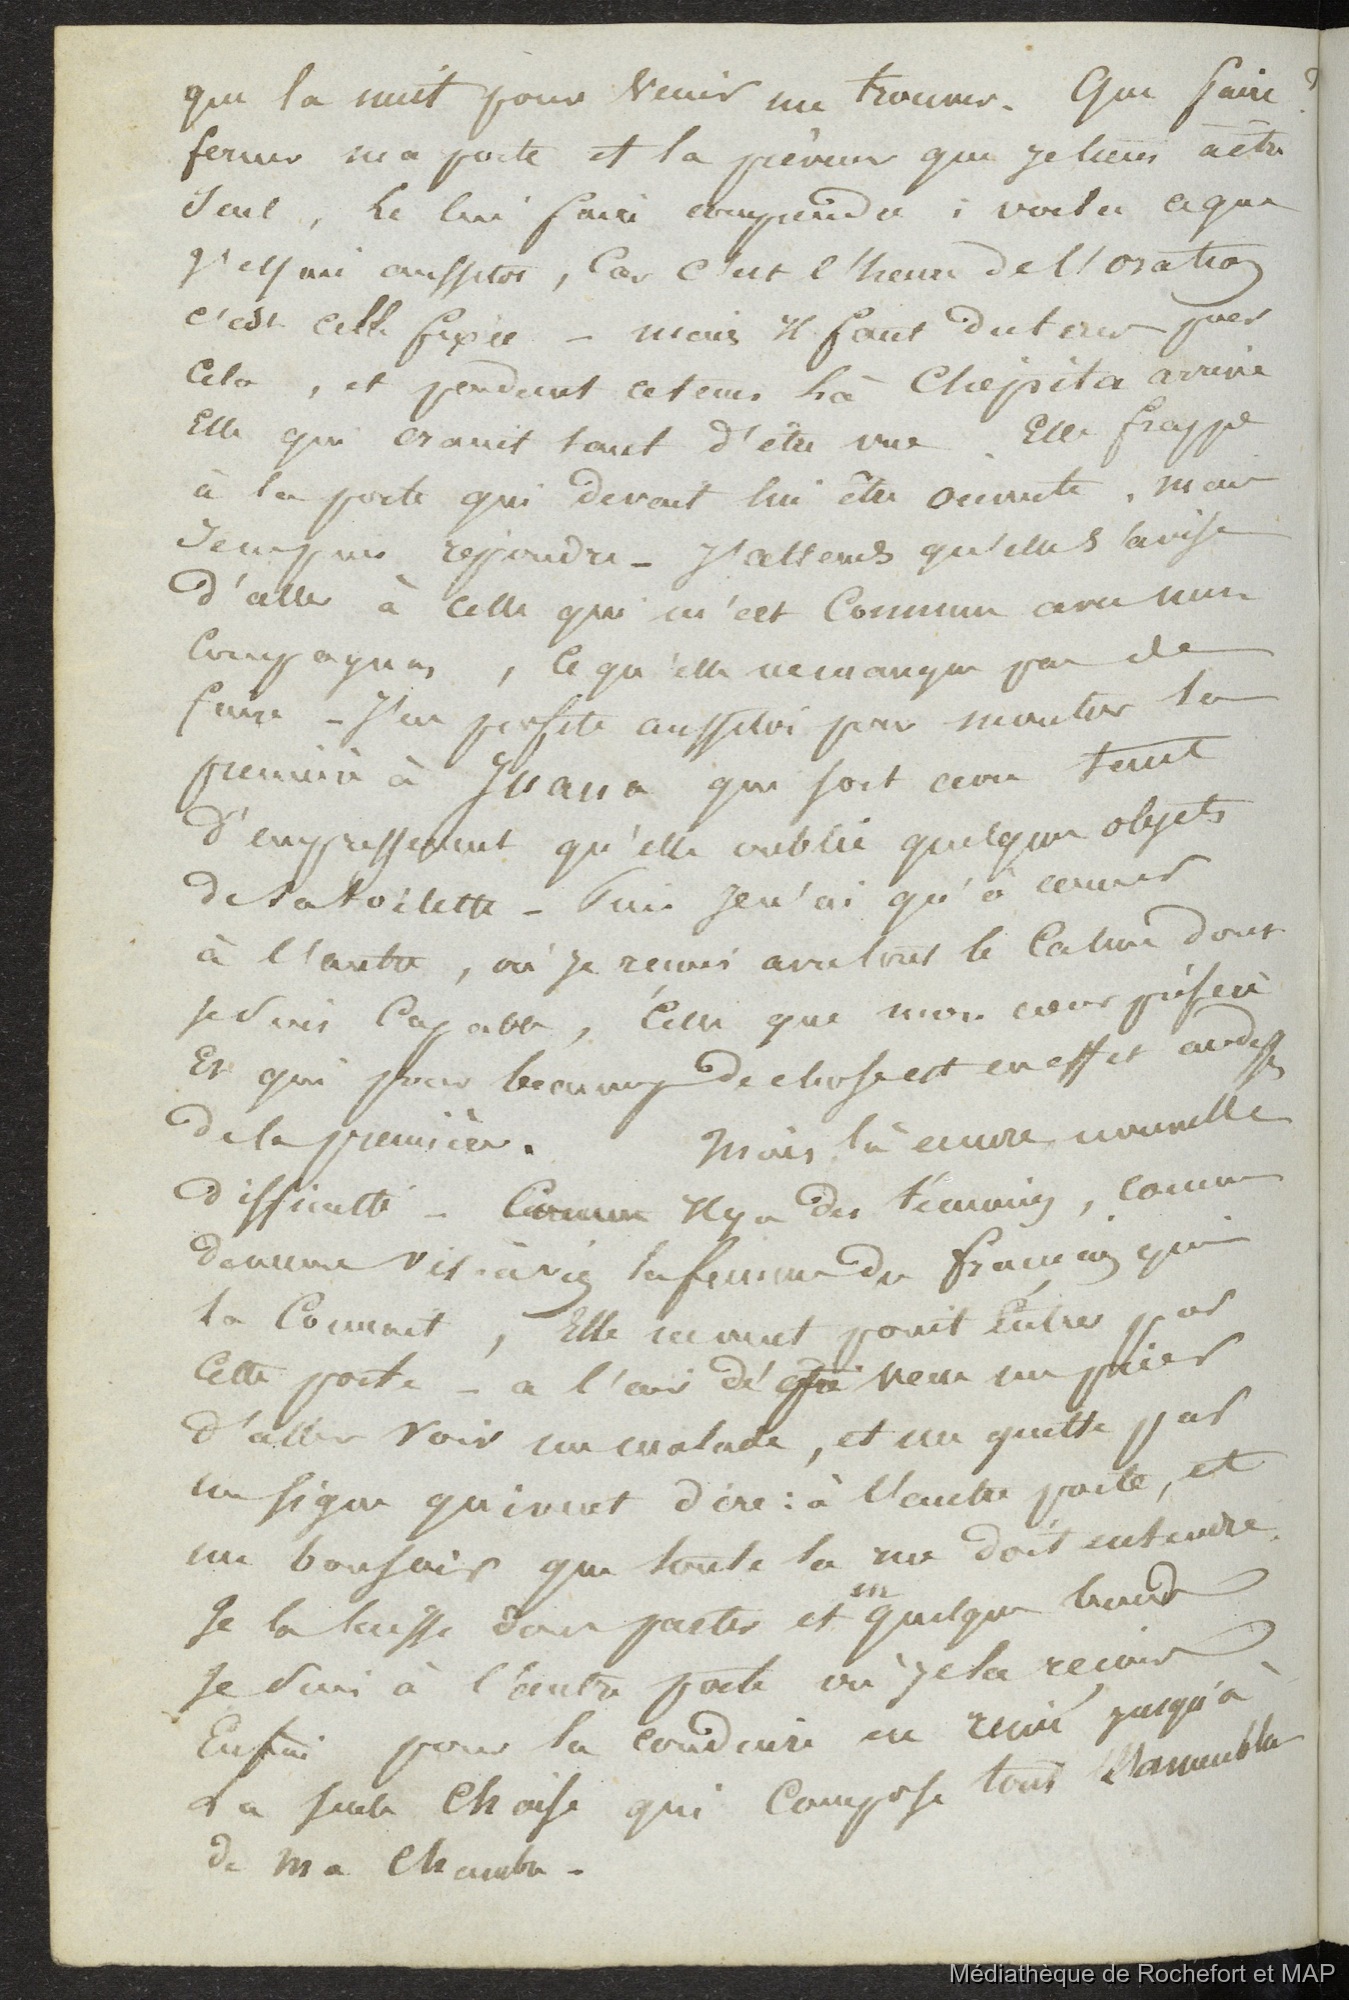 que la nuit pour venir me trouver. Que faire ?
fermer ma porte et la prévenir que je tiens à être
seul, Le lui faire comprendre ; voila ce que
j'essaie aussitot, Car c'est l'heure de l'oration
c'est celle fixée - mais Il faut du tems pour
Cela, et pendant ce tems là Chepita arrive
Elle qui craint tant d'être vue. Elle frappe
à la porte qui devait lui être ouverte. mais
Je ne puis repondre - J'attends qu'elle s'avise
d'aller à celle qui m'est Commune avec mon
Compagnon, Ce qu'elle ne manque pas de
faire - J'en profite aussitot pour montrer la
première à Juana qui sort avec tant
d'empressement qu'elle oublie quelques objets
de sa toilette - Puis je n'ai qu'à courir
à l'autre, où je reçois avec tout le Calme dont
je suis Capable, Celle que mon cœur préfère
Et qui pour beaucoup de choses est en effet audessus
de la première. Mais là encore nouvelle
difficulté - Comme Il y a des témoins, comme
demeure vis-à-vis la femme du français qui
la Connait, Elle ne veut point Entrer par
Cette porte - a l'air de venir me prier
d'aller voir un malade, et me quitte par
un signe qui veut dire : à l'autre porte, et
un bonsoir que toute la rue doit entendre.
Je la laisse donc partir et en quelques bonds
Je suis à l'autre porte où je la reçois
Enfin pour la conduire jusqu'à
La seule Chaise qui Compose tout l'ameublement
de ma Chambre -
Médiathèque de Rochefort et MAP